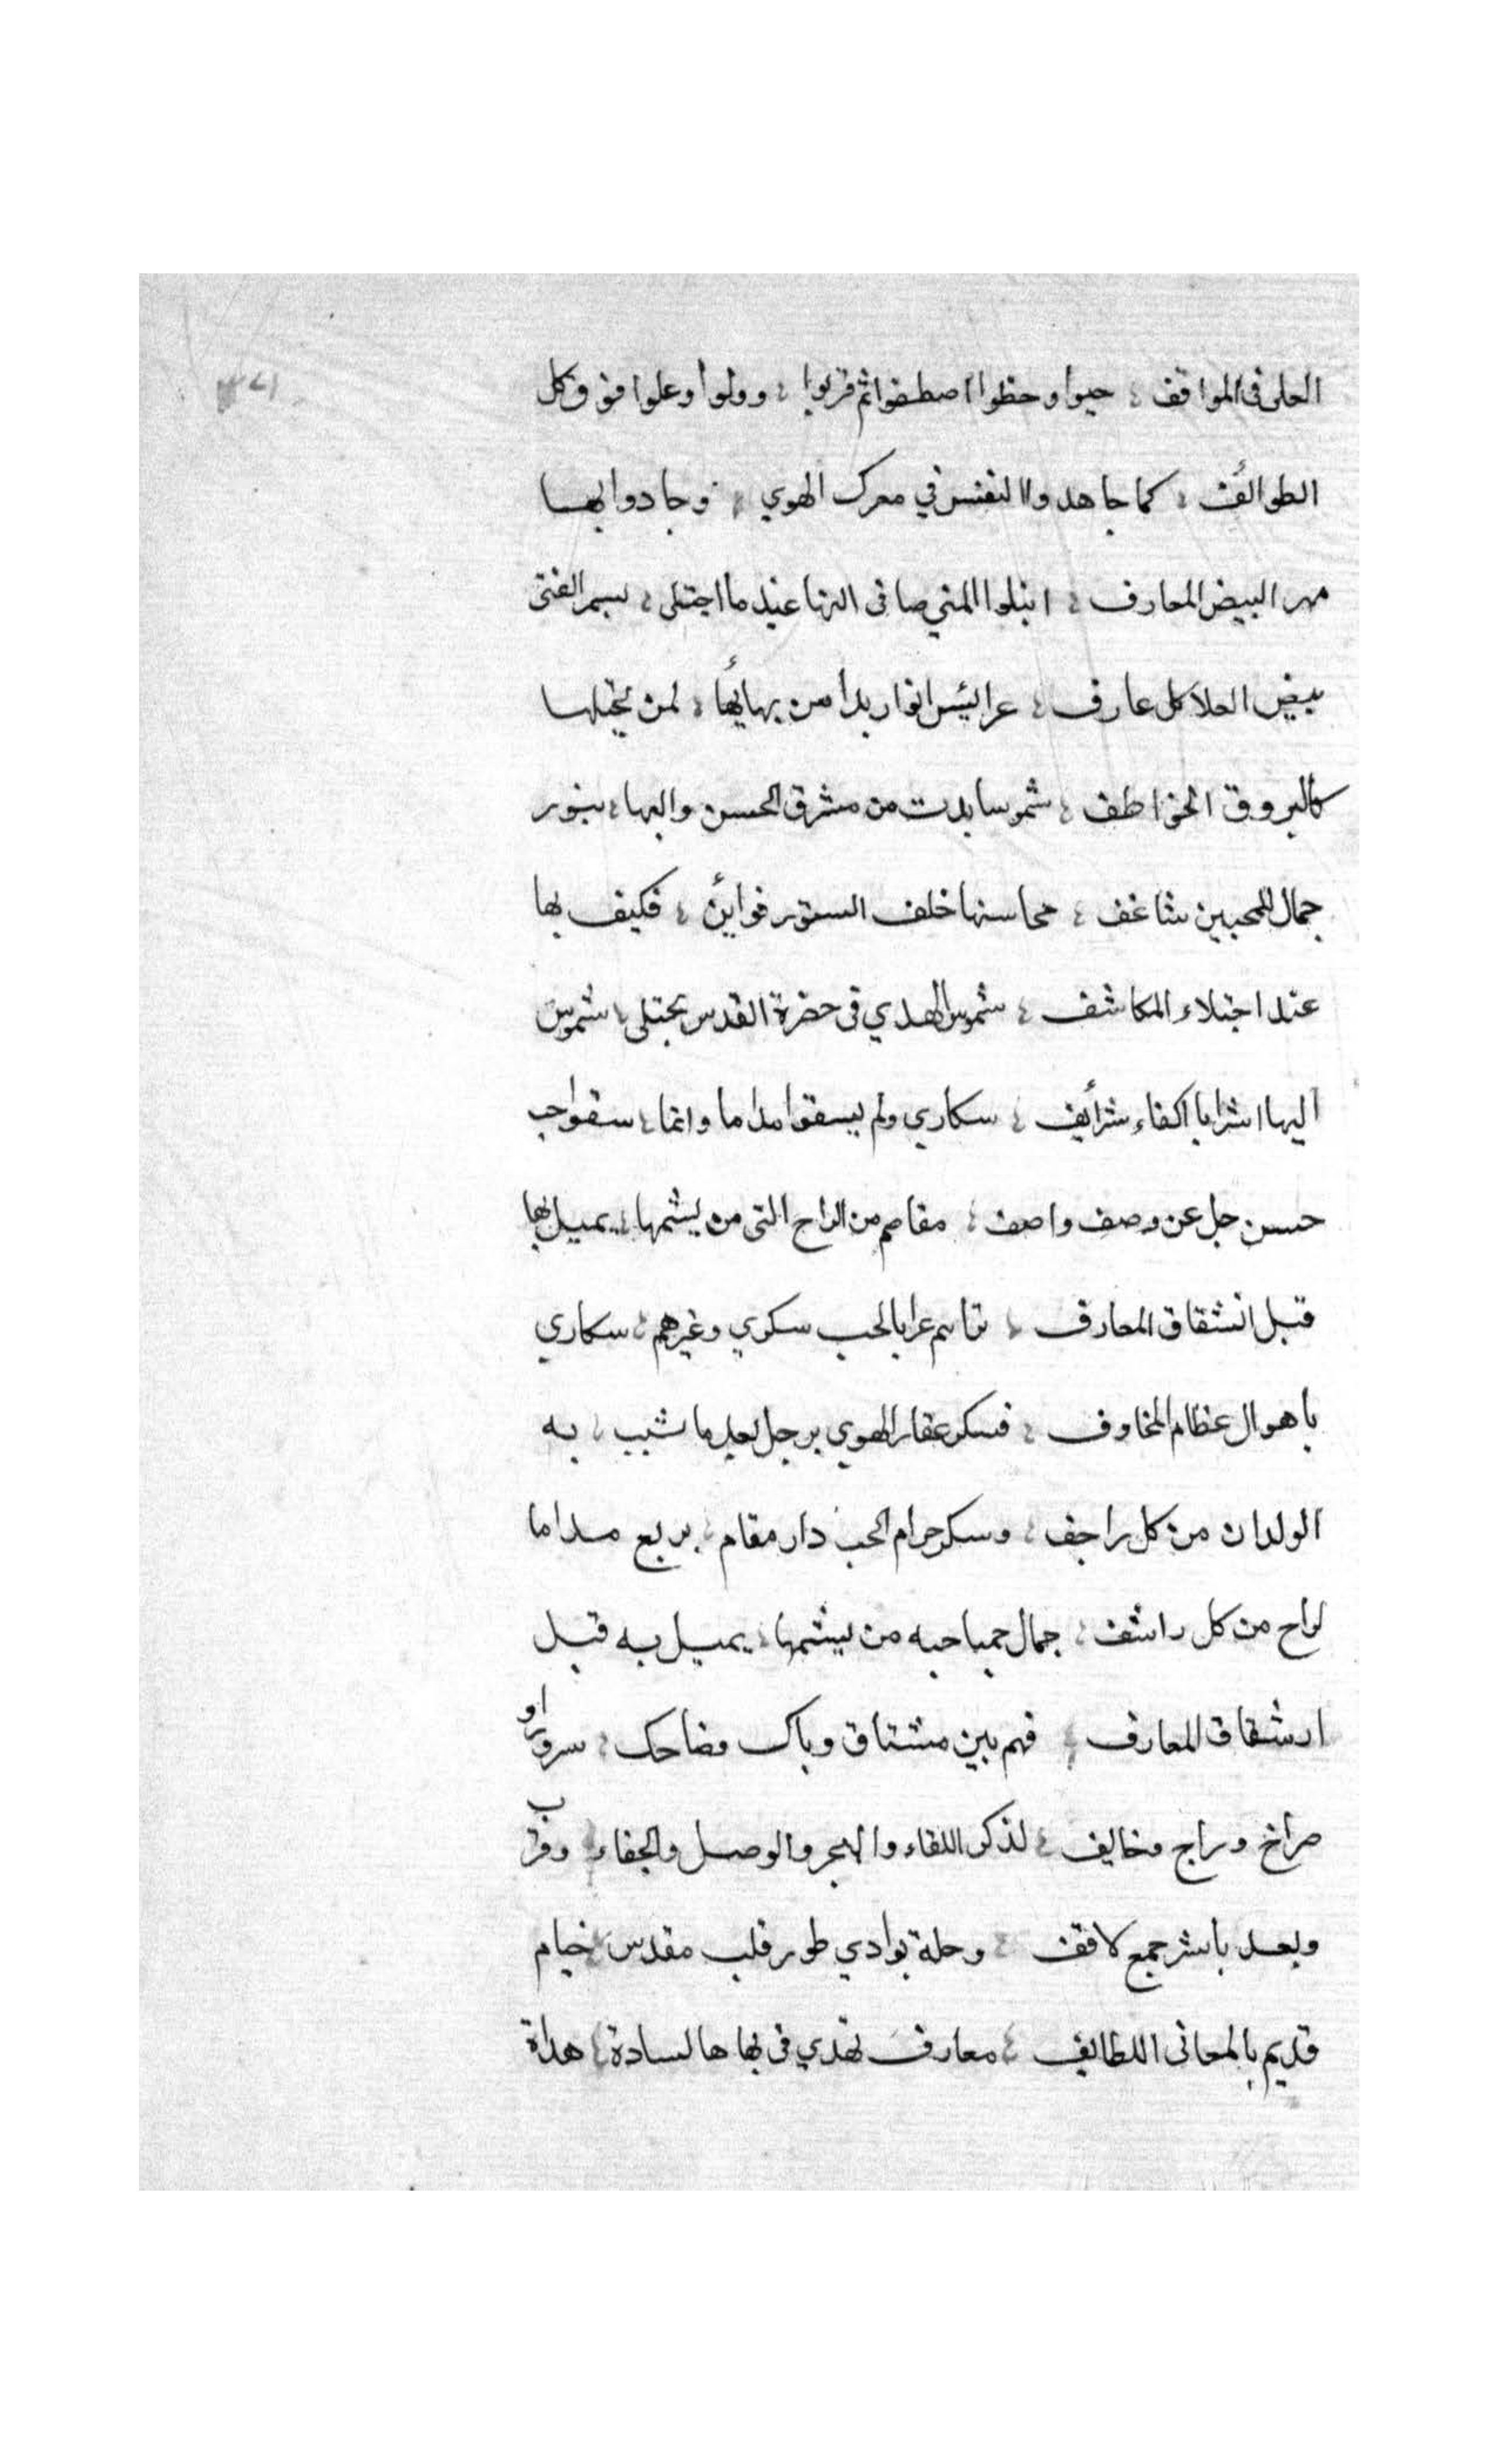 العلى فى المواقف ؛ حبوا وحظوا اصطفوا ثم قربوا ؛ وولوا وعلوا فوق وكل
الطوائف ؛ كما جاهدوا النفس في معرك الهوي ؛ وجادوا بها
مهر البيض المعارف ؛ المني صافى عند ما اجتلى ؛ بسمر الفتى
ببيض العلا كل عارف ؛ عرائس انوار بدا من بهائها ؛ لمن يجتلها
كالبروق الخواطف ؛ شموسا بدت من مشرق الحسن والبها ؛ بنور
جمال للمحبين شاغف ؛ محاسنها خلف الستور فوائن ؛ فكيف بها
عند اجتلاء المكاشف ؛ شموس الهدي فى حضرة القدس تجتلى ؛ شموس
اليها اشرابا اكفاء شرائف ؛ سكاري ولم يسقوا مداما وانما ؛ سقوا حب
حسن جل عن وصف واصف ؛ مقامهم من الراح التى من يشمها ؛ يميل بها
قبل انشقاق المعارف ؛ بالحب سكري وغيرهم ؛ سكاري
باهوال عظام المخاوف ؛ فسكر عقار الهوي يرحل بعد ما شيب ؛ به
الولدان من كل راجف ؛ وسكر حرام الحب دار مقام ؛ بربع مداما
لراح من كل راشف ؛ جمال حميا حبه من يشمها ؛ يميل به قبل
ارشقاق المعارف ؛ فهم بين مشتاق وباك وضاحك ؛ سرورا و
صراخ وراج وخايف ؛ لذكر اللقاء والهجر والوصل والجفاء ؛ وقرب
وبعد باشر جمع لاقف ؛ وحلة بوادي طور قلب مقدس ؛ خيام
قديم بالمعانى اللطايف ؛ معارف تهدي فى بهاها لسادة ؛ هداة